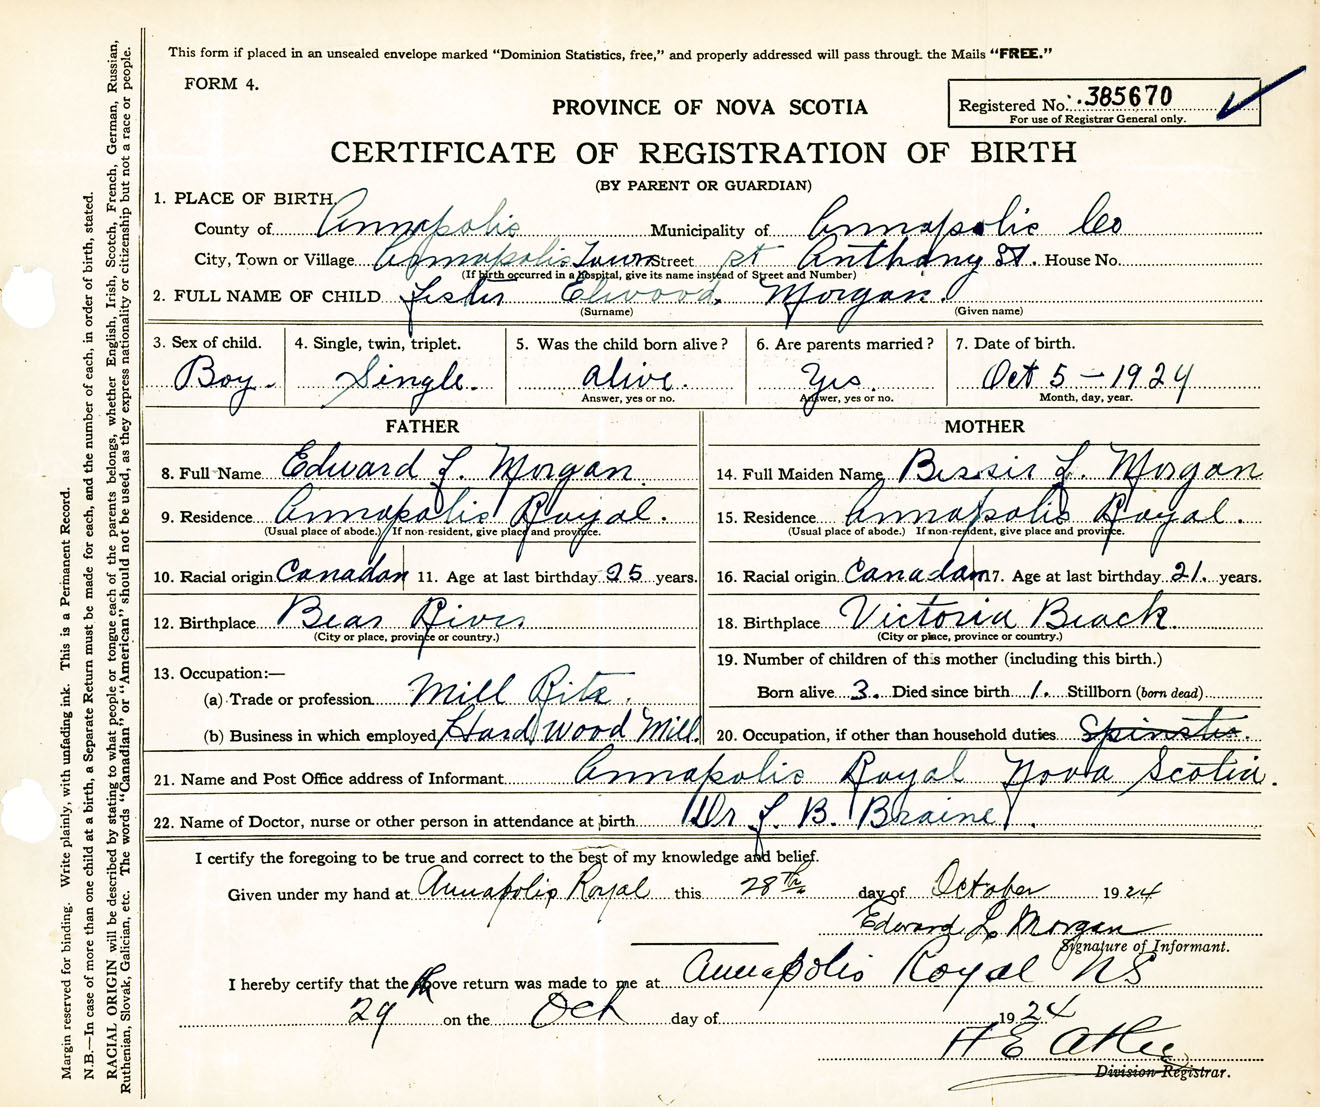 This form if placed in an unsealed envelope marked "Dominion Statistics, free," and properly addressed will pass through the Mails "FREE."
FORM 4.
Registered No. 385670
For use of Registrar General only.
PROVINCE OF NOVA SCOTIA
CERTIFICATE OF REGISTRATION OF BIRTH
(BY PARENT OR GUARDIAN)
1. PLACE OF BIRTH.
County of Annapolis Municipality of Annapolis Co
City, Town or Village Annapolis Town Street St Anthony St. House No.
(If birth occurred in a hospital, give its name instead of Street and Number)
2. FULL NAME OF CHILD Lester Elwood Morgan.
(Surname) (Given name)
3. Sex of child. 4. Single, twin, triplet. 5. Was the child born alive? 6. Are parents married? 7. Date of birth.
Boy. Single. alive. Yes. Oct 5 - 1924
Answer, yes or no. Answer, yes or no. Month, day, year.
FATHER MOTHER
8. Full Name Edward L. Morgan. 14. Full Maiden Name Bessie L. Morgan
9. Residence Annapolis Royal. 15. Residence Annapolis Royal.
(Usual place of abode.) If non-resident, give place and province. (Usual place of abode.) If non-resident, give place and province.
10. Racial origin Canadan 11. Age at last birthday 25 years. 16. Racial origin Canadan 17. Age at last birthday 21. years.
12. Birthplace Bear River 18. Birthplace Victoria Beach.
(City or place, province or country.) (City or place, province or country.)
13. Occupation:— 19. Number of children of this mother (including this birth.)
(a) Trade or profession Mill Born alive 3. Died since birth 1. Stillborn (born dead)
(b) Business in which employed Hard Wood Mill. 20. Occupation, if other than household duties Spinster.
21. Name and Post Office address of Informant Annapolis Royal Nova Scotia.
22. Name of Doctor, nurse or other person in attendance at birth Dr L. B. Braine.
I certify the foregoing to be true and correct to the best of my knowledge and belief.
Given under my hand at Annapolis Royal this 28th day of October 1924
Edward L. Morgan
Signature of Informant.
I hereby certify that the above return was made to me at Annapolis Royal NS
29th on the Oct day of 1924
H E
Division Registrar.
Margin reserved for binding. Write plainly, with unfading ink. This is a Permanent Record.
N.B.—In case of more than one child at a birth, a Separate Return must be made for each, and the number of each, in order of birth, stated.
RACIAL ORIGIN will be described by stating to what people or tongue each of the parents belongs, whether English, Irish, Scotch, French, German, Russian,
Ruthenian, Slovak, Galician, etc. The words "Canadian" or "American" should not be used, as they express nationality or citizenship but not a race or people.